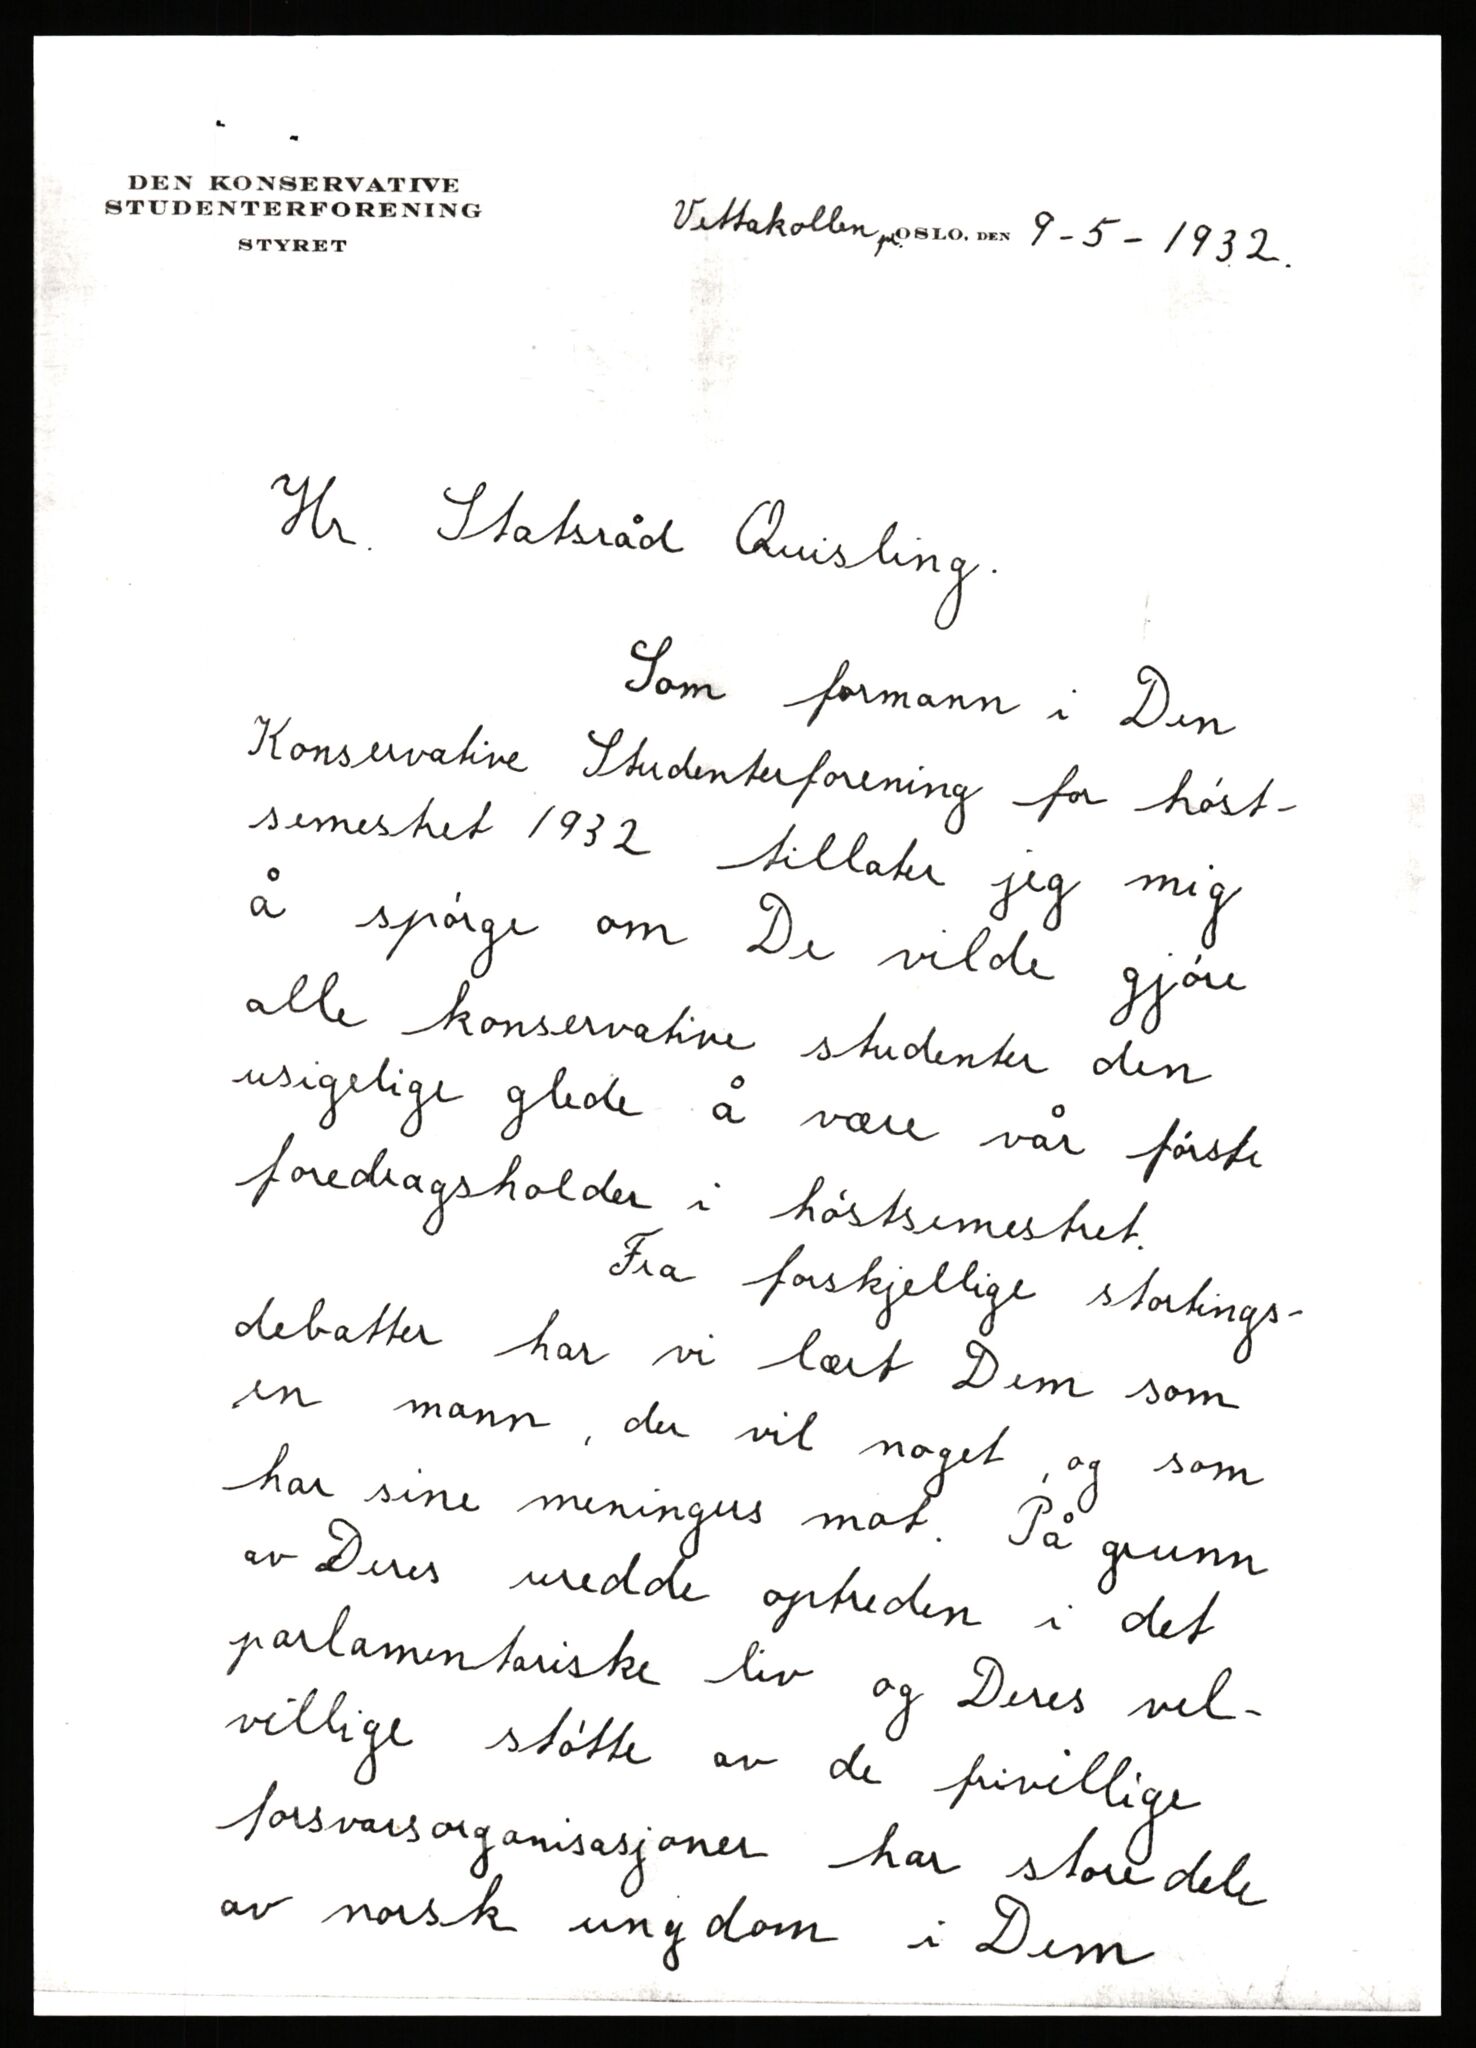 DEN KONSERVATIVE
STUDENTERFORENING
STYRET
Vettakollen pr. OSLO, DEN 9-5-1932.
Hr. Statsråd Quisling.
Som formann i Den
Konservative Studenterforening for höst-
semestret 1932 tillater jeg mig
å spörge om De vilde gjöre
alle konservative studenter den
usigelige glede å være vår förste
foredragsholder i höstsemestret.
Fra forskjellige stortings-
debatter har vi lært Dem som
en mann, der vil noget, og som
har sine meningers mot. På grunn
av Deres uredde optreden i det
parlamentariske liv og Deres vel-
villige stötte av de frivillige
forsvarsorganisasjoner har store dele
av norsk ungdom i Dem